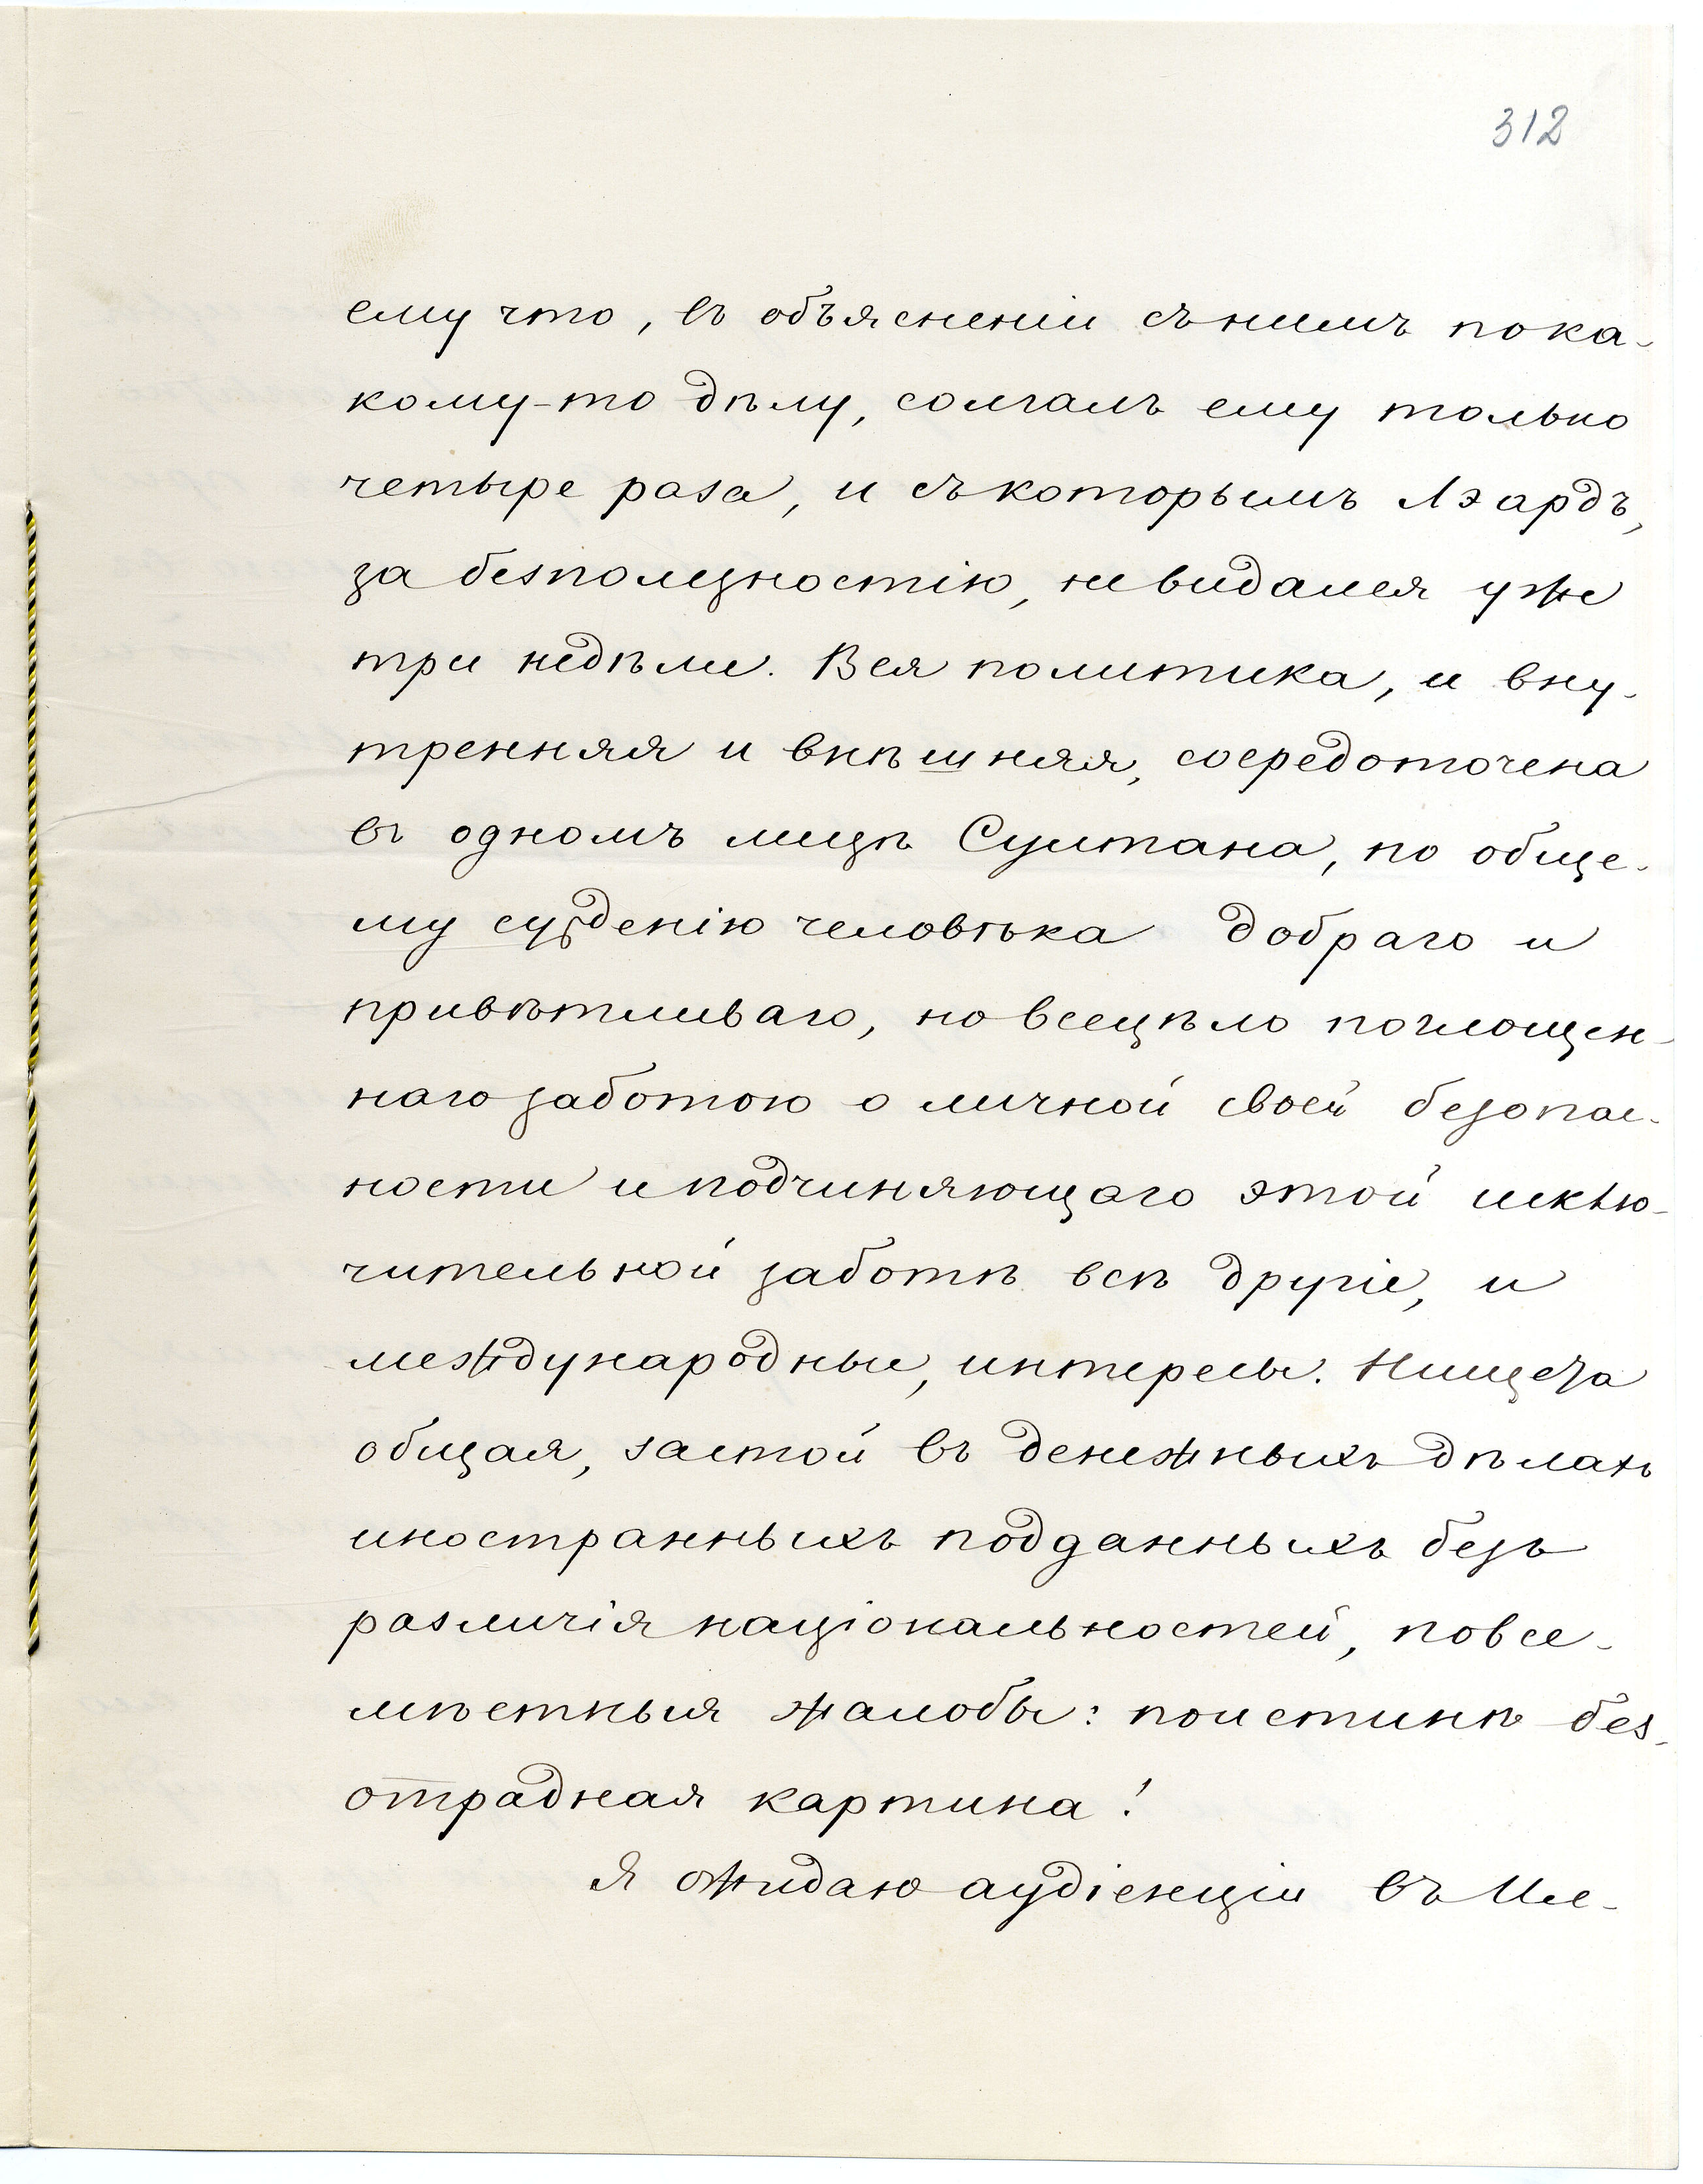 312
ему что, въ объясненіи съ нимъ по ка-
кому-то дѣлу, солгалъ ему только
четыре раза, и съ которымъ Лэардъ,
за безполезностію, не видался уже
три недѣли. Вся политика, и вну-
тренняя и внѣшняя, сосредоточена
въ одномъ лицѣ Султана, по обще-
му сужденію человѣка добраго и
привѣтливаго, но всецѣло поглощен-
наго заботою о личной своей безопас-
ности и подчиняющаго этой исклю-
чительной заботѣ всѣ другіе, и
международные, интересы. Нищета
общая, застой въ денежныхъ дѣлахъ
иностранныхъ подданныхъ безъ
различія національностей, повсе-
мѣстныя жалобы: поистинѣ без-
отрадная картина!
Я ожидаю аудіенціи въ Ил-